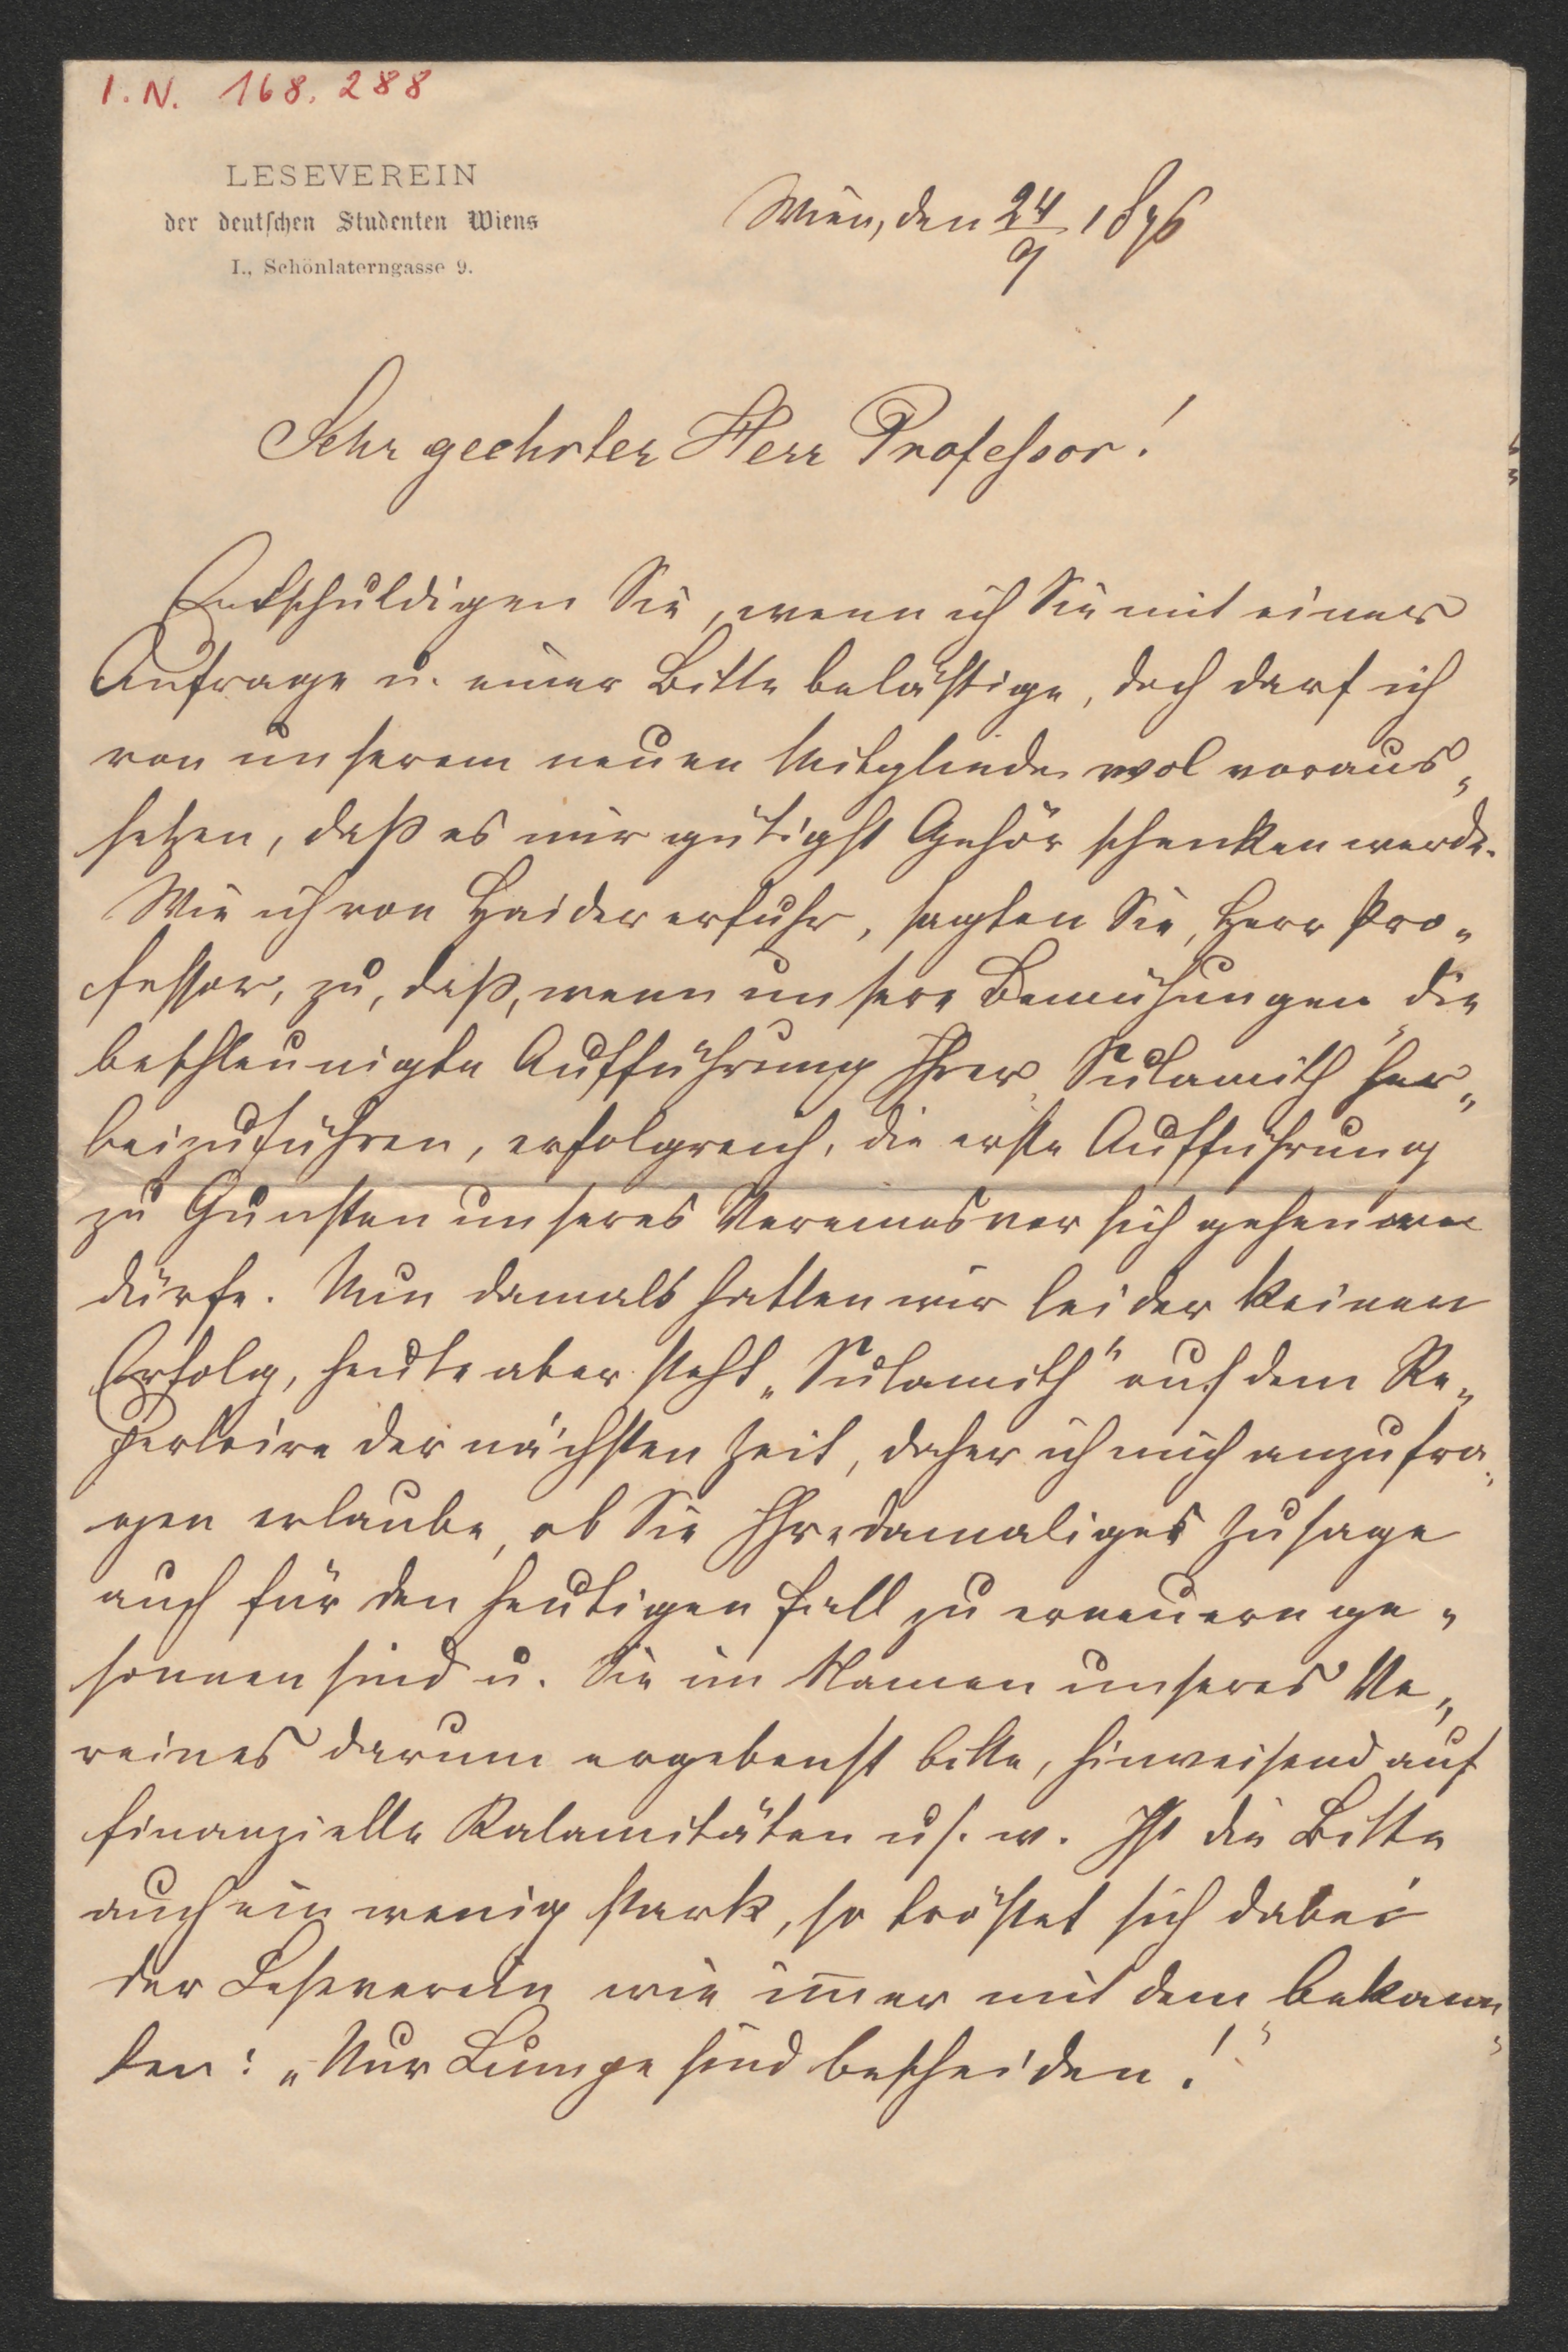 I. N. 168. 288
LESEVEREIN
der deutschen Studenten Wiens
I., Schönlaterngasse 9.
Wien, den 24/9 1876
Sehr geehrter Herr Professor!
Entschuldigen Sie, wenn ich Sie mit einer
Anfrage u. einer Bitte belästige, doch darf ich
von unserem neuen Mitgliede wol voraus„
setzen, daß es mir gütigst Gehör schenken werde.
Wie ich von Haider erfuhr, sagten Sie, Herr Pro„
fessor, zu, daß, wenn unsere Bemühungen die
beschleunigte Aufführung Ihrer „Sulamith" her„
beizuführen, erfolgreich, die erste Aufführung
zu Gunsten unseres Vereines vor sich gehen
dürfe. Nun damals hatten wir leider keinen
Erfolg, heute aber steht „Sulamith" auf dem Re„
pertoire der nächsten Zeit, daher ich mich anzufra„
gen erlaube, ob Sie Ihre damaliges Zusage
auch für den heutigen Fall zu erneuern ge„
sonnen sind u. Sie im Namen unseres Ve„
reines darum ergebenst bitte, hinweisend auf
finanzielle Kalamitäten u.s.w. Ist die Bitte
auch ein wenig stark, so tröstet sich dabei
der Leseverein wie im̅er mit dem bekann„
ten: „Nur Lumpe sind bescheiden!"